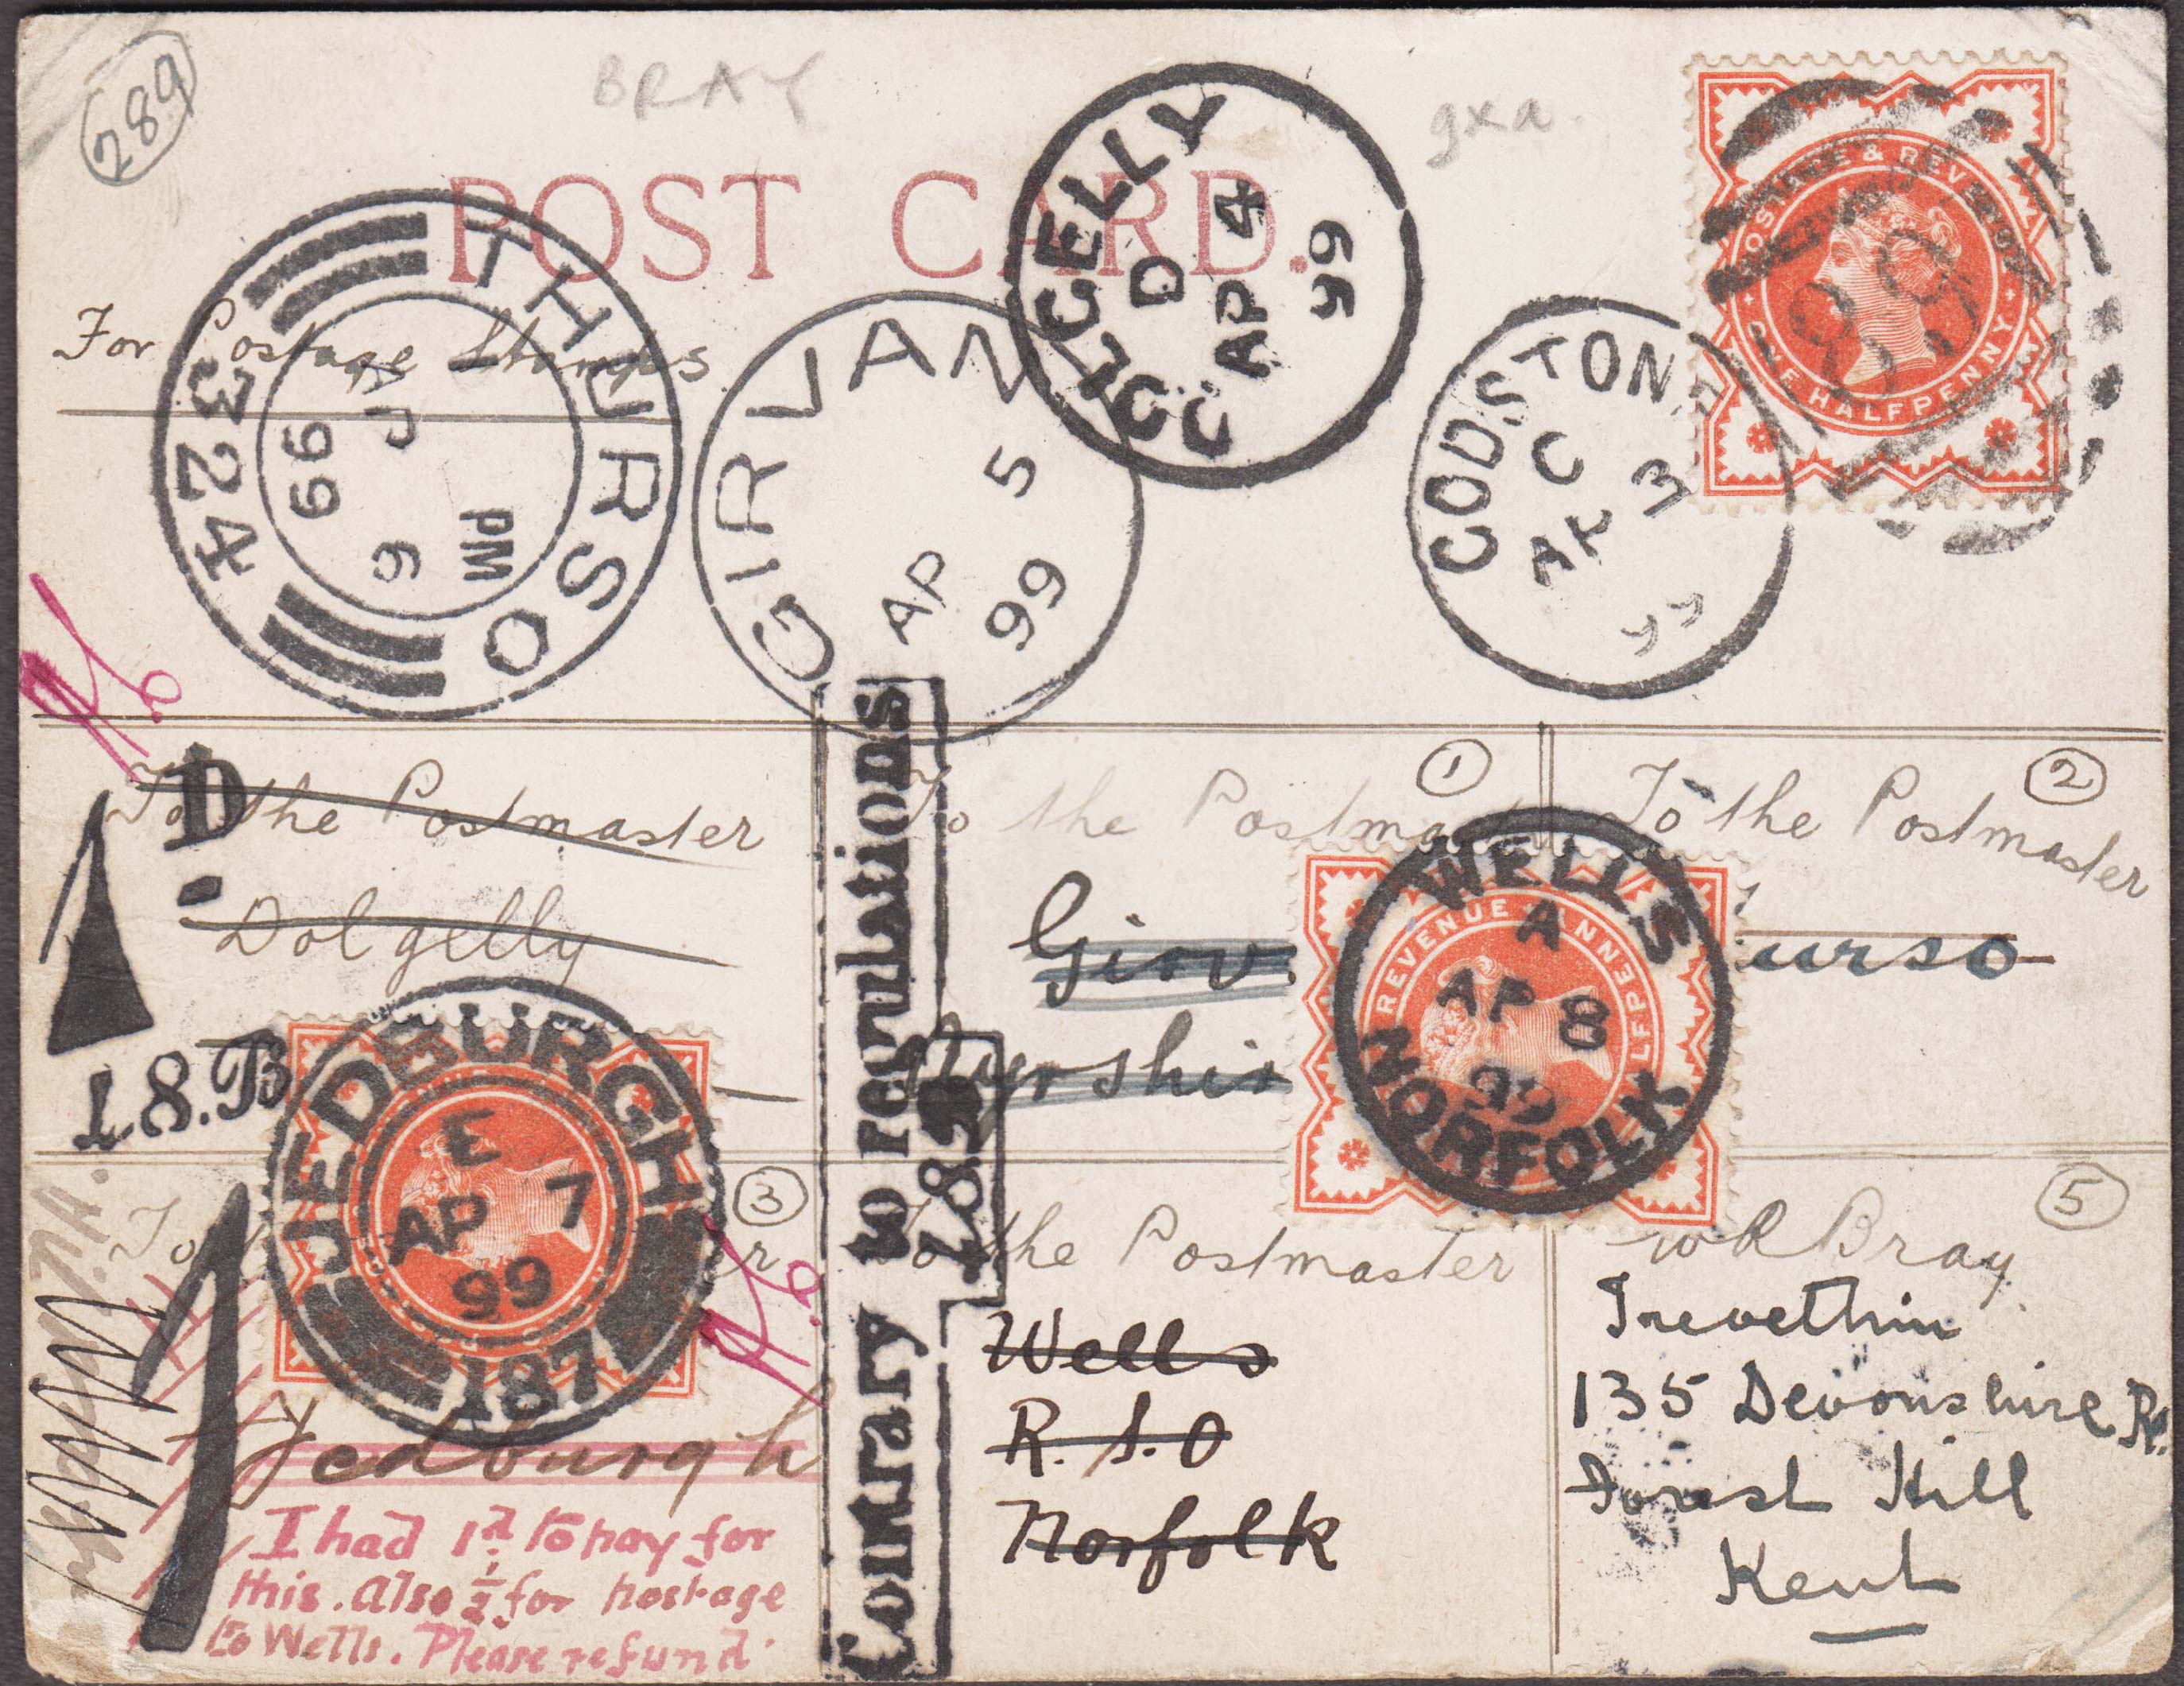 289
BRAY
gxa.
POST CARD.
POSTAGE & REVENUE
ONE HALFPENNY
For Postage Stamps
THURSO
324
PM
6
99
GIRVAN
AP 5
99
DOLGELLY
D
AP 4
99
GODSTONE
C
AP 3
To the Postmaster
Dolgelly
D
1
I.8.B
To the Postma
①
Girv
Ayrshir
To the Postmaster
②
urso
WELLS
A
AP 8
99
NORFOLK
REVENUE
JEDBURGH
E
AP 7
99
187
To
③
r
1
Jedburgh
I had 1d to pay for
this. Also ½ for postage
to Wells. Please refund
Contrary to regulations
187
To the Postmaster
Wells
R.S.O
Norfolk
⑤
W R Bray
Trevethin
135 Devonshire Rd
Forest Hill
Kent